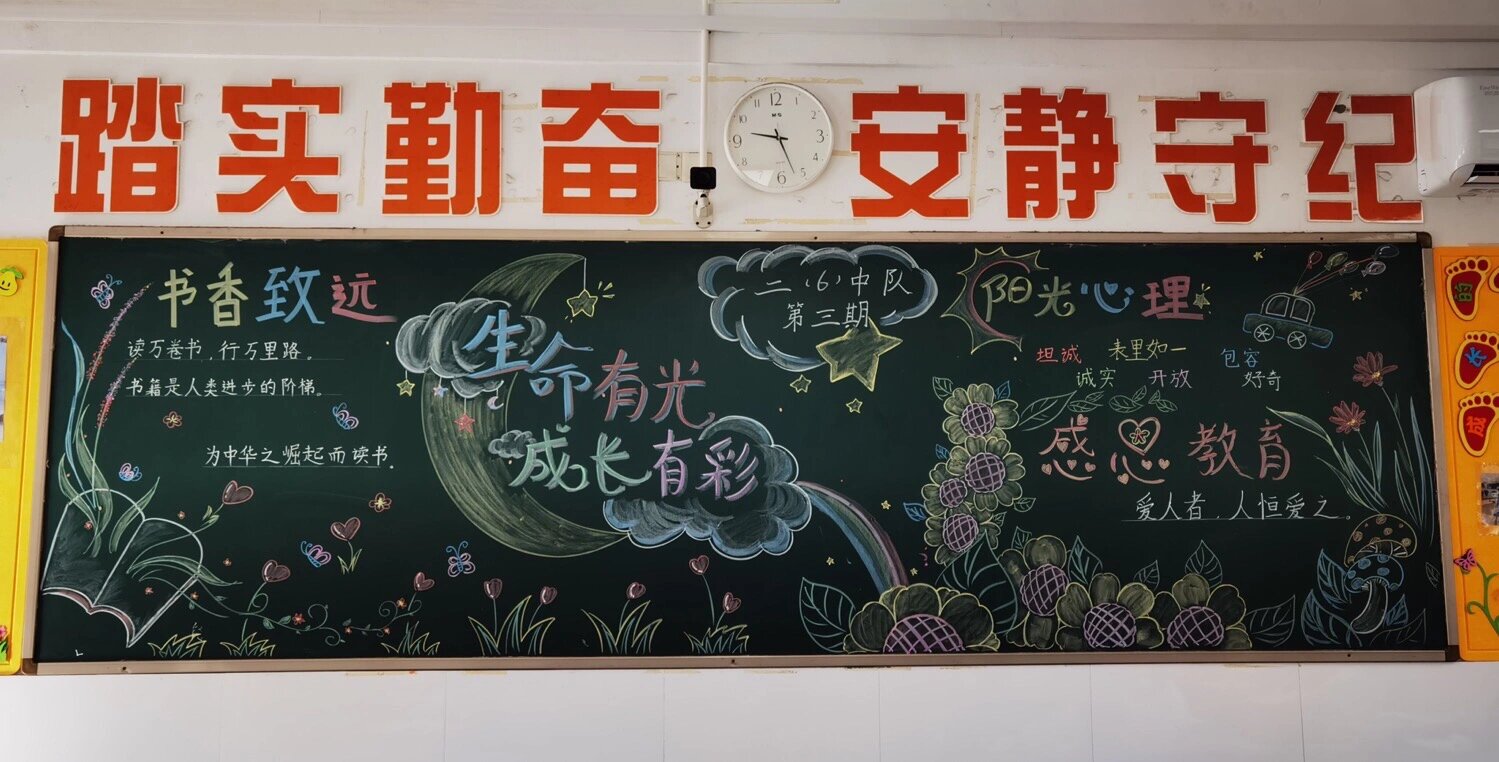 踏实勤奋 安静守纪
12
1
2
3
4
5
6
7
8
9
10
11
书香致远
读万卷书，行万里路。
书籍是人类进步的阶梯。
为中华之崛起而读书.
生命有光
成长有彩
二（6）中队
第三期
阳光心理
坦诚 表里如一 包容
诚实 开放 好奇
感恩教育
爱人者，人恒爱之。
的
长